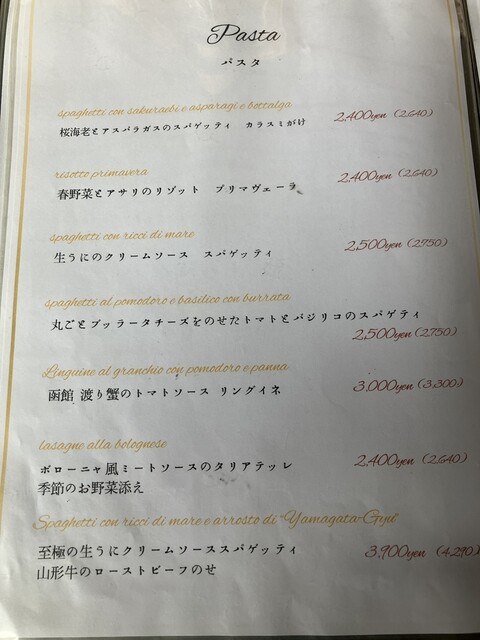 Pasta
パスタ
spaghetti con sakuraebi e asparagi e bottalga
2,400yen (2,640)
桜海老とアスパラガスのスパゲッティ カラスミがけ
risotto primavera
2,400yen (2,640)
春野菜とアサリのリゾット プリマヴェーラ
spaghetti con ricci di mare
2,500yen (2750)
生うにのクリームソース スパゲッティ
spaghetti al pomodoro e basilico con burrata
丸ごとブッラータチーズをのせたトマトとバジリコのスパゲティ
2,500yen (2,750)
Linguine al granchio con pomodoro e panna
3,000yen (3,300)
函館 渡り蟹のトマトソース リングイネ
lasagne alla bolognese
2,400yen (2,640)
ボローニャ風ミートソースのタリアテッレ
季節のお野菜添え
Spaghetti con ricci di mare e arrosto di "Yamagata-Gyu"
至極の生うにクリームソーススパゲッティ
3,900yen (4,290)
山形牛のローストビーフのせ